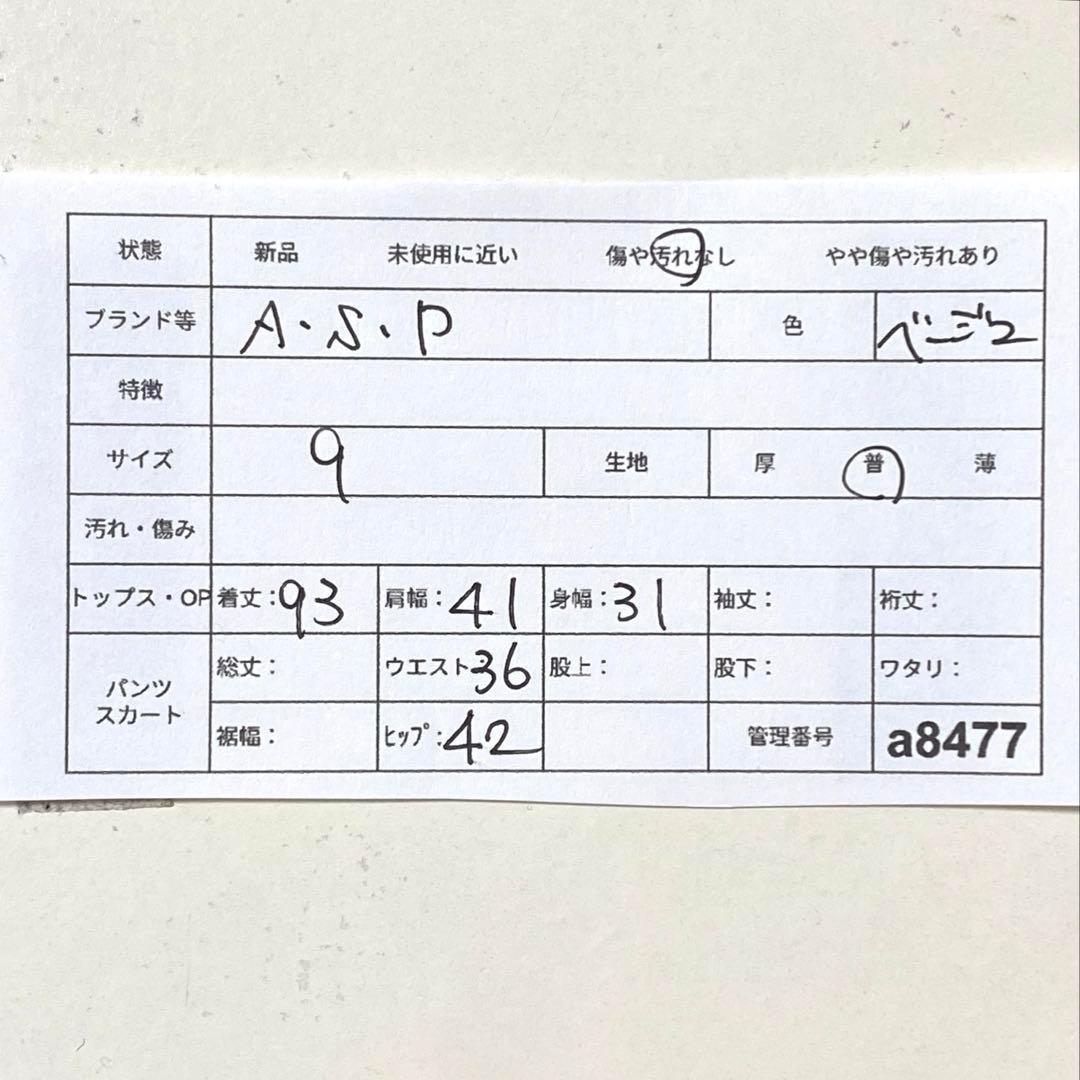 状態 新品 未使用に近い 傷や汚れなし やや傷や汚れあり
ブランド等 A.S.P 色 ベージュ
特徴
サイズ 9 生地 厚 普 薄
汚れ・傷み
トップス・OP 着丈:93 肩幅:41 身幅:31 袖丈: 裄丈:
パンツ
スカート
総丈: ウエスト36 股上: 股下: ワタリ:
裾幅: ﾋｯﾌﾟ:42 管理番号 a8477